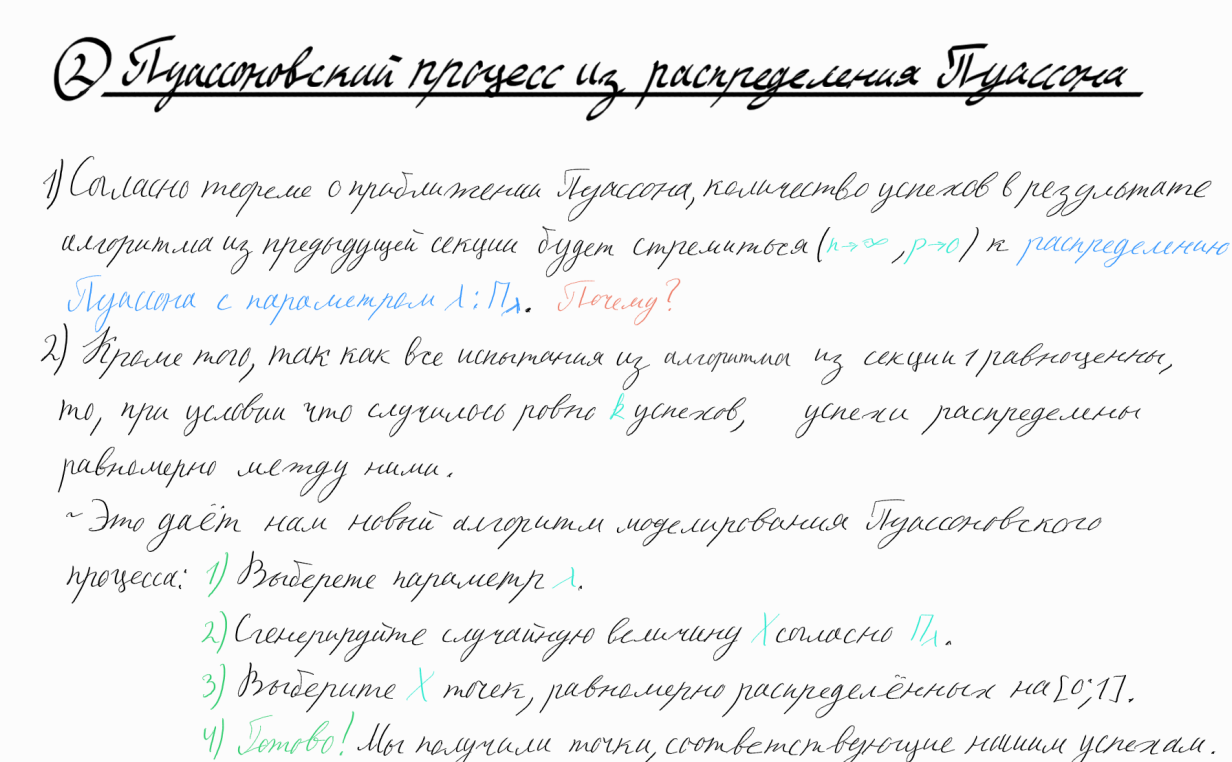 ② Пуассоновский процесс из распределения Пуассона
1) Согласно теореме о приближении Пуассона, количество успехов в результате
алгоритма из предыдущей секции будет стремиться (n→∞, p→0) к распределению
Пуассона с параметром λ: Πλ. Почему?
2) Кроме того, так как все испытания из алгоритма из секции 1 равноценны,
то, при условии что случилось ровно k успехов, успехи распределены
равномерно между ними.
~ Это даёт нам новый алгоритм моделирования Пуассоновского
процесса: 1) Выберете параметр λ.
2) Сгенерируйте случайную величину X согласно Πλ.
3) Выберите X точек, равномерно распределённых на [0;1].
4) Готово! Мы получили точки, соответствующие нашим успехам.